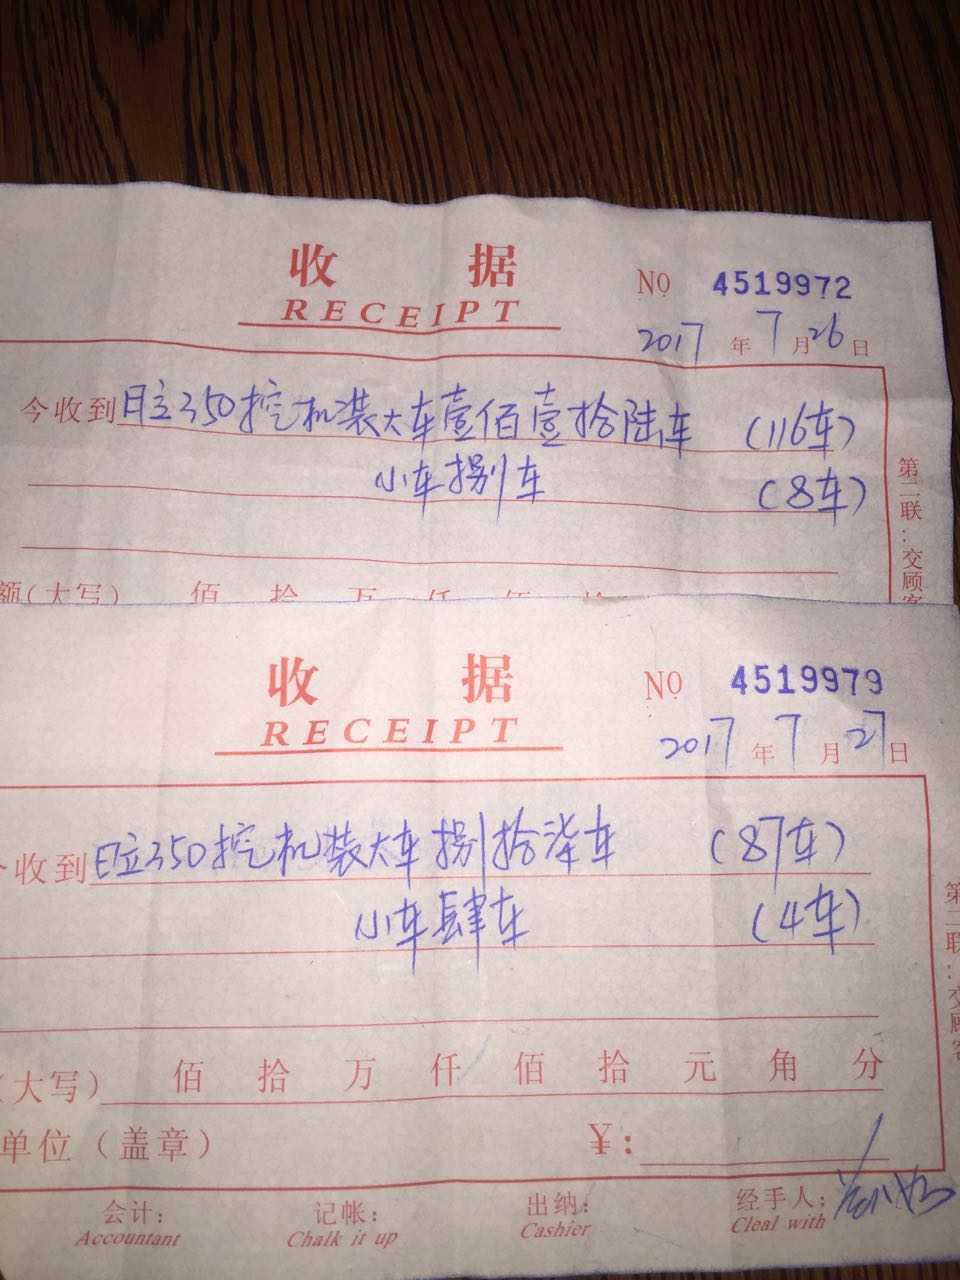 收 据
RECEIPT
№ 4519972
2017 年 7 月 26 日
今收到 日立350挖机装大车壹佰壹拾陆车 (116车)
小车捌车 (8车)
第二联:交顾客
额(大写) 佰 拾 万 仟 佰 拾
收 据
RECEIPT
№ 4519979
2017 年 7 月 27 日
今收到 日立350挖机装大车捌拾柒车 (87车)
小车肆车 (4车)
第二联:交顾客
(大写) 佰 拾 万 仟 佰 拾 元 角 分
单位(盖章) ¥:
会计: 记帐: 出纳: 经手人:
Accountant Chalk it up Cashier Cleal with